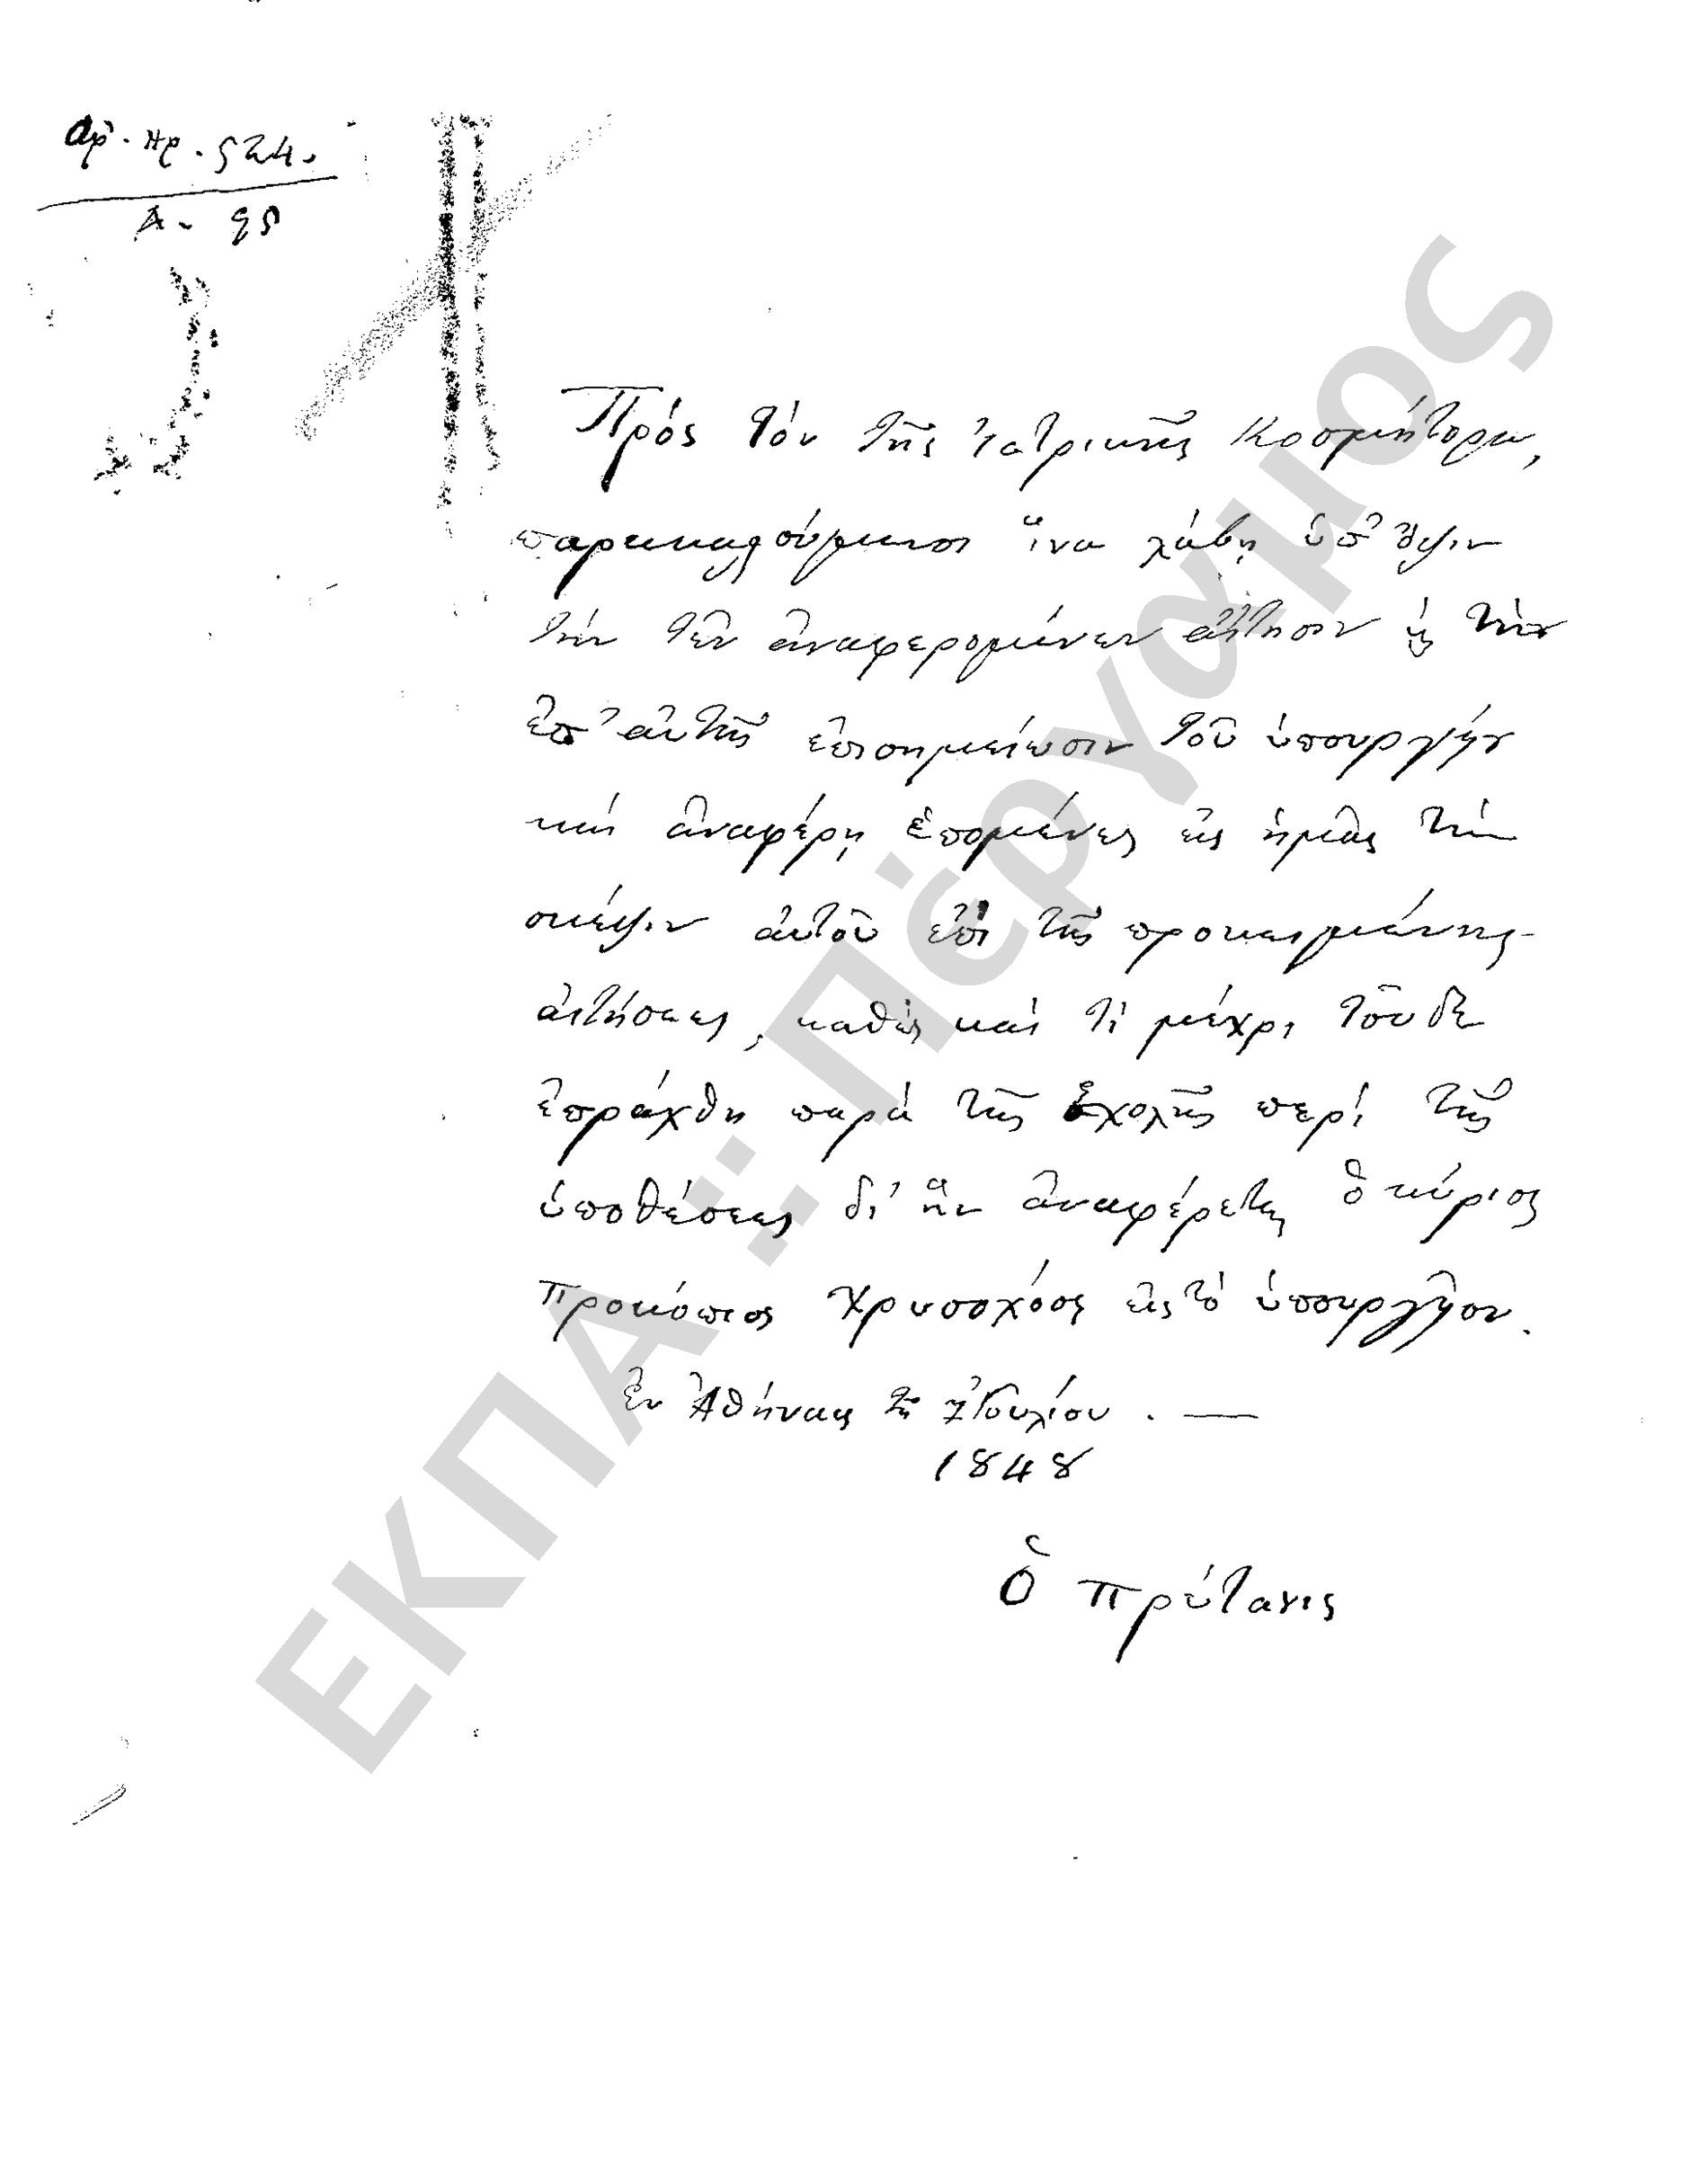 Αρ. πρ. 524.
Α. 95
Πρὸς τὸν τῆς Ἰατρικῆς Κοσμήτορα,
παρακαλούμενον ἵνα λάβῃ ὑπ' ὄψιν
τὴν τῶν ἀναφερομένων αἴτησιν καὶ τὴν
ἐπ' αὐτῆς ἐπισημείωσιν τοῦ ὑπουργείου
καὶ ἀναφέρῃ ἑπομένως εἰς ἡμᾶς τὴν
σκέψιν αὐτοῦ ἐπὶ τῆς προκειμένης
αἰτήσεως, καθὼς καὶ τί μέχρι τοῦδε
ἐπράχθη παρὰ τῆς Σχολῆς περὶ τῆς
ὑποθέσεως δι' ἣν ἀναφέρεται ὁ κύριος
Προκόπιος Χρυσοχόος εἰς τὸ ὑπουργεῖον.
Ἐν Ἀθήναις τῇ 7 Ἰουλίου. —
1848
Ὁ Πρύτανις
ΕΚΠΑ :: Πέργαμος